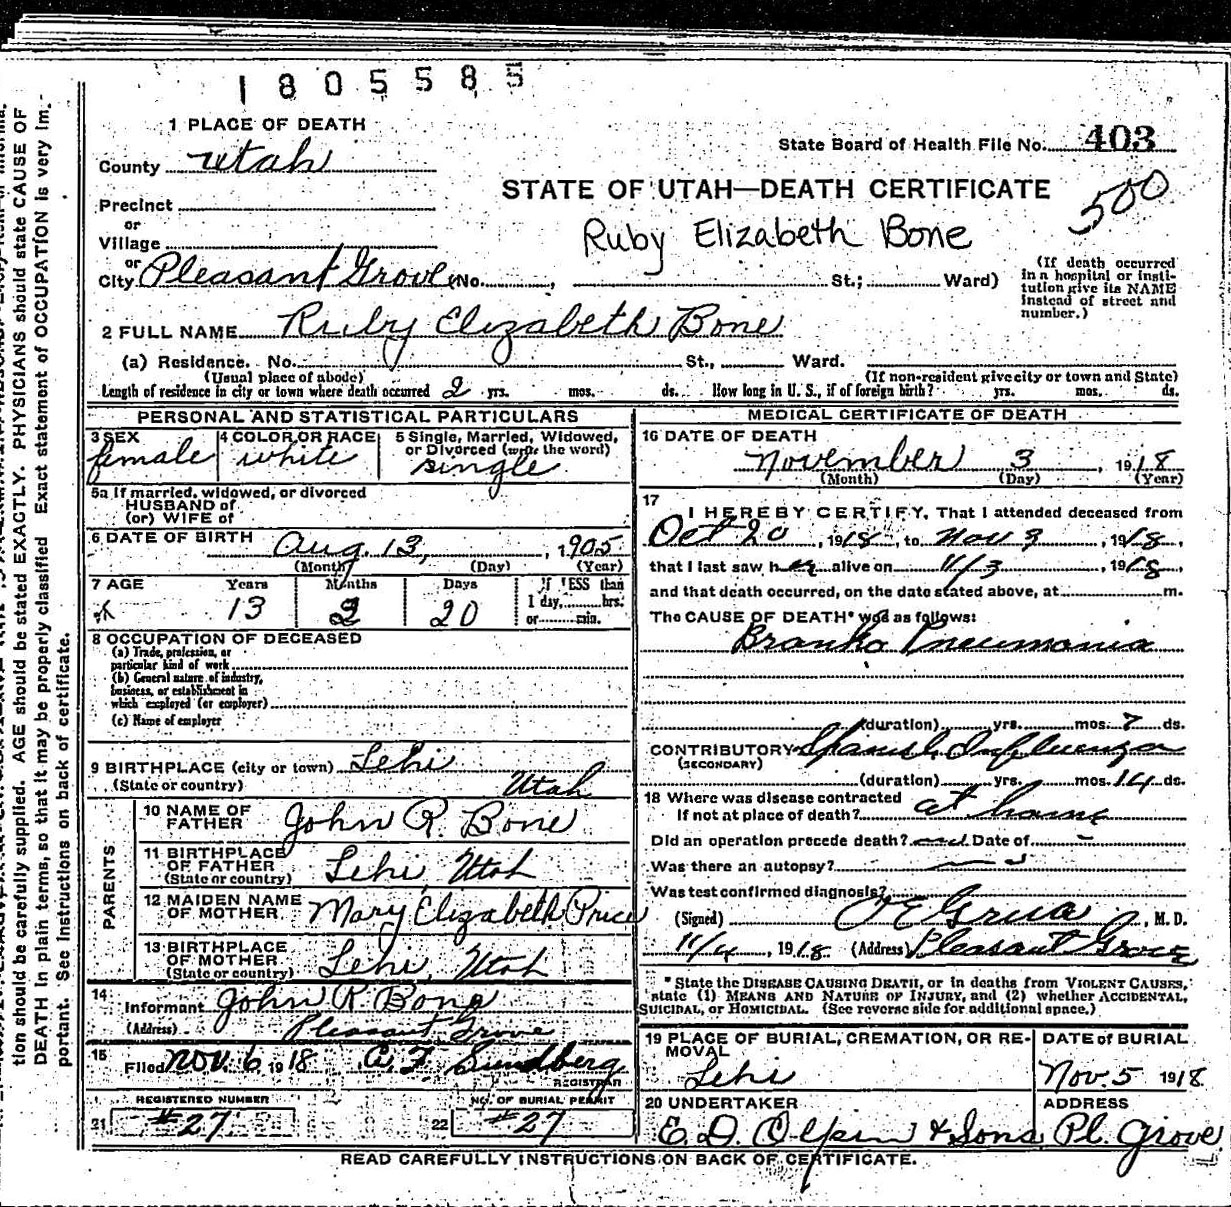 1805585
1 PLACE OF DEATH
State Board of Health File No. 403
County Utah
STATE OF UTAH—DEATH CERTIFICATE
500
Precinct
or
Village
Ruby Elizabeth Bone
or
City Pleasant Grove (No. , St.; Ward)
(If death occurred
in a hospital or insti-
tution give its NAME
instead of street and
number.)
2 FULL NAME Ruby Elizabeth Bone
(a) Residence. No. St., Ward.
(Usual place of abode) (If non-resident give city or town and State)
Length of residence in city or town where death occurred 2 yrs. mos. ds. How long in U. S., if of foreign birth? yrs. mos. ds.
PERSONAL AND STATISTICAL PARTICULARS
3 SEX
female
4 COLOR OR RACE
white
5 Single, Married, Widowed,
or Divorced (write the word)
single
5a If married, widowed, or divorced
HUSBAND of
(or) WIFE of
6 DATE OF BIRTH Aug. 13, 1905
(Month) (Day) (Year)
7 AGE Years Months Days If LESS than
1 day, hrs.
or min.
13 2 20
8 OCCUPATION OF DECEASED
(a) Trade, profession, or
particular kind of work
(b) General nature of industry,
business, or establishment in
which employed (or employer)
(c) Name of employer
9 BIRTHPLACE (city or town) Lehi
(State or country) Utah
PARENTS
10 NAME OF
FATHER John R. Bone
11 BIRTHPLACE
OF FATHER
(State or country) Lehi, Utah
12 MAIDEN NAME
OF MOTHER Mary Elizabeth Price
13 BIRTHPLACE
OF MOTHER
(State or country) Lehi, Utah
14
Informant John R Bone
(Address) Pleasant Grove
15
Filed Nov. 6 1918 A. F. Sundberg
REGISTRAR
REGISTERED NUMBER NO. OF BURIAL PERMIT
21 #27 22 #27
MEDICAL CERTIFICATE OF DEATH
16 DATE OF DEATH
November 3, 1918
(Month) (Day) (Year)
17
I HEREBY CERTIFY, That I attended deceased from
Oct 20, 1918, to Nov 3, 1918,
that I last saw her alive on 11/3, 1918,
and that death occurred, on the date stated above, at m.
The CAUSE OF DEATH* was as follows:
Branko Pneumonia
(duration) yrs. mos. 7 ds.
CONTRIBUTORY Spanish Influenza
(SECONDARY)
(duration) yrs. mos. 14 ds.
18 Where was disease contracted
If not at place of death? at home
Did an operation precede death? Date of
Was there an autopsy?
Was test confirmed diagnosis?
(Signed) Grua, M. D.
11/4, 1918 (Address) Pleasant Grove
*State the DISEASE CAUSING DEATH, or in deaths from VIOLENT CAUSES,
state (1) MEANS AND NATURE OF INJURY, and (2) whether ACCIDENTAL,
SUICIDAL, or HOMICIDAL. (See reverse side for additional space.)
19 PLACE OF BURIAL, CREMATION, OR RE-
MOVAL
Lehi
DATE of BURIAL
Nov. 5 1918
20 UNDERTAKER
E. D. Olpin & Sons
ADDRESS
Pl. Grove
READ CAREFULLY INSTRUCTIONS ON BACK OF CERTIFICATE.
tion should be carefully supplied. AGE should be stated EXACTLY. PHYSICIANS should state CAUSE OF
DEATH in plain terms, so that it may be properly classified. Exact statement of OCCUPATION is very im-
portant. See Instructions on back of certificate.